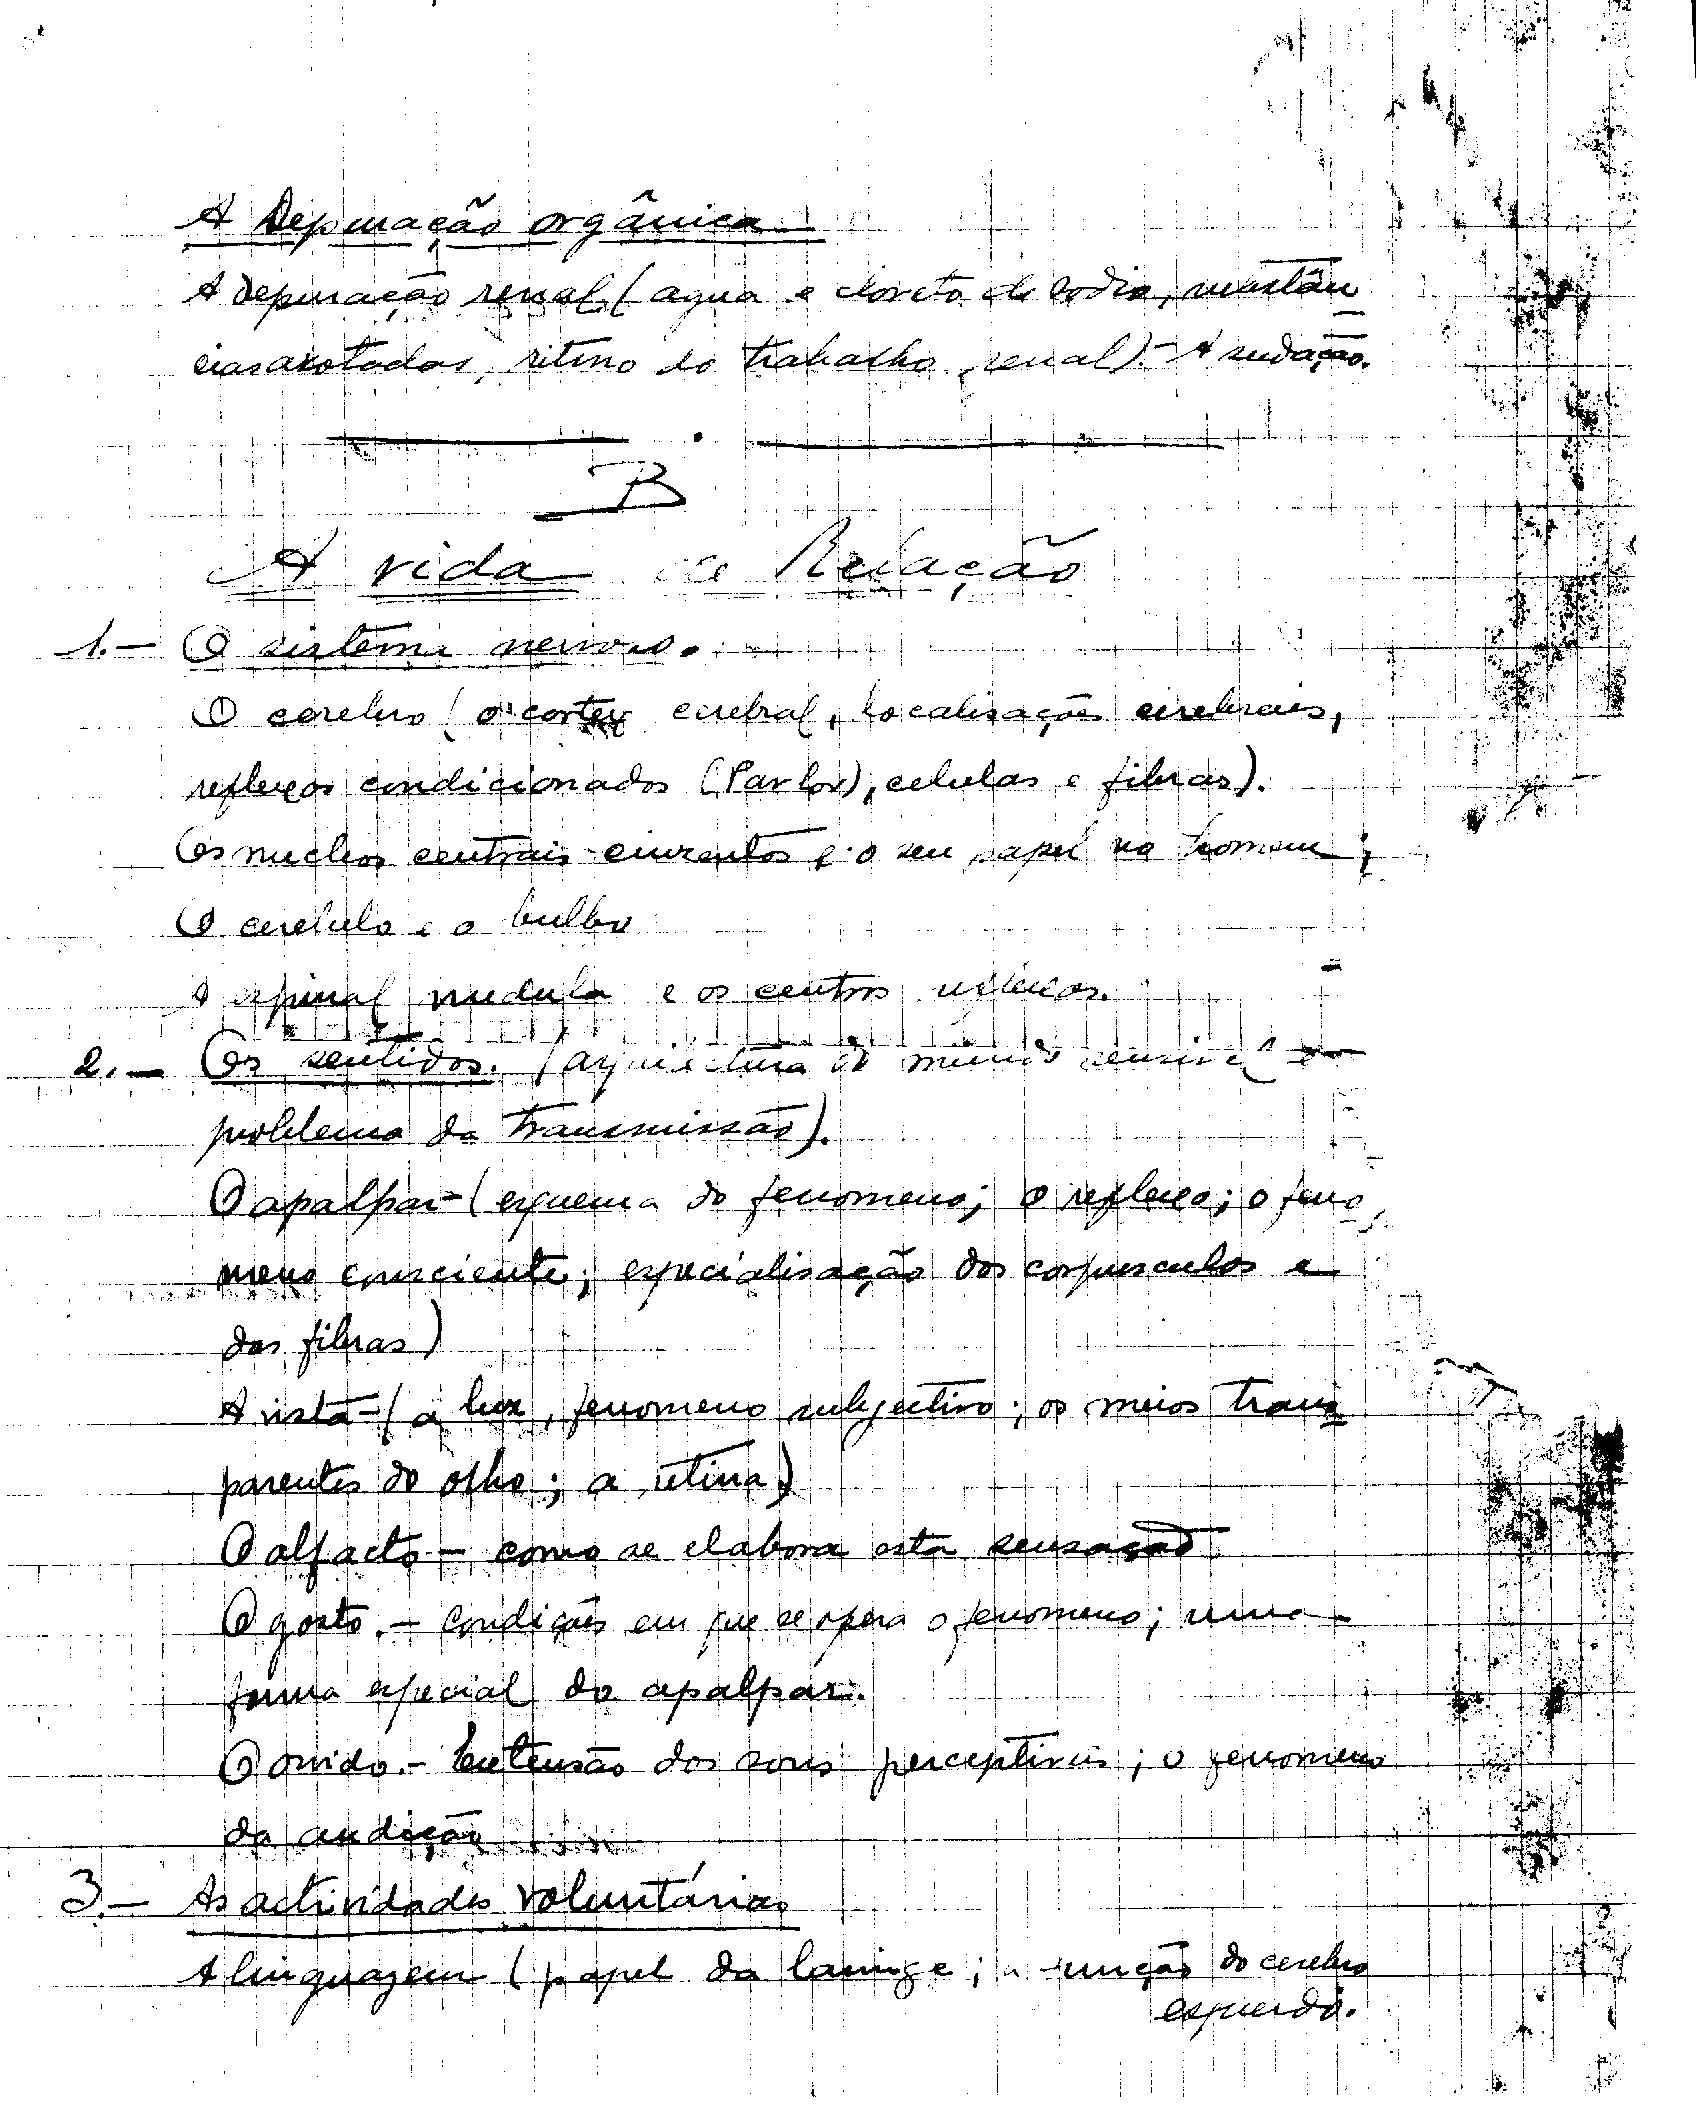 A Depuração orgânica
A depuração renal (agua e cloreto de sodio, substân
cias azotadas, ritmo do trabalho renal).- A sudação.
B
A vida de Relação
1.- O sistema nervoso.
O cerebro (o cortex cerebral, localisações cerebrais,
reflexos condicionados (Pavlov), celulas e fibras).
Os nucleos centrais cinzentos e o seu papel no homem;
O cerebelo e o bulbo
A espinal medula e os centros reflexos.
2.- Os sentidos. (arquitectura do mundo sensivel
problema da transmissão).
O apalpar - (esquema do fenomeno; o reflexo; o feno
meno consciente; especialisação dos corpusculos e
das fibras)
A vista - (a luz, fenomeno subjectivo; os meios trans
parentes do olho; a retina)
O olfacto - como se elabora esta sensação
O gosto. - Condições em que se opera o fenomeno; uma
forma especial do apalpar.
O ouvido. - Extensão dos sons perceptiveis; o fenomeno
da audição
3.- As actividades voluntárias
A linguagem (papel da laringe; a função do cerebro
esquerdo.